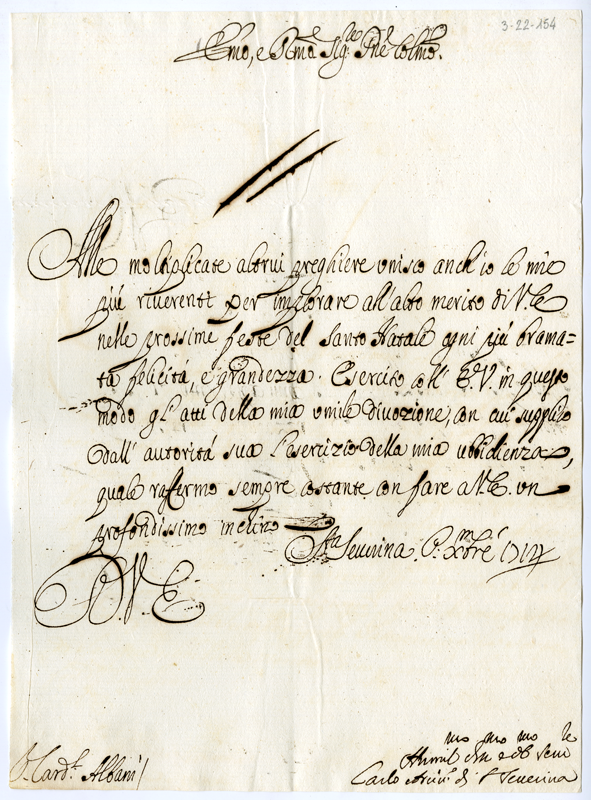 3-22-154
Emo, e Rmo Sig.re Pne Colmo.
Alle moltiplicate altrui preghiere unisco anch'io le mie
più riverenti per implorare all'alto merito di V.E.
nelle prossime feste del Santo Natale ogni più brama=
ta felicità, e grandezza. Esercito coll' E.V. in questo
modo gl'atti della mia umile divozione, con cui supplico
dall'autorità sua l'esercizio della mia ubbidienza,
quale raffermo sempre costante con fare a V.E. un
profondissimo inchino
Sta Severina. P.mo Xbre
D. V. E.
Card.l Albani
Carlo Arciv.o di S. Severina